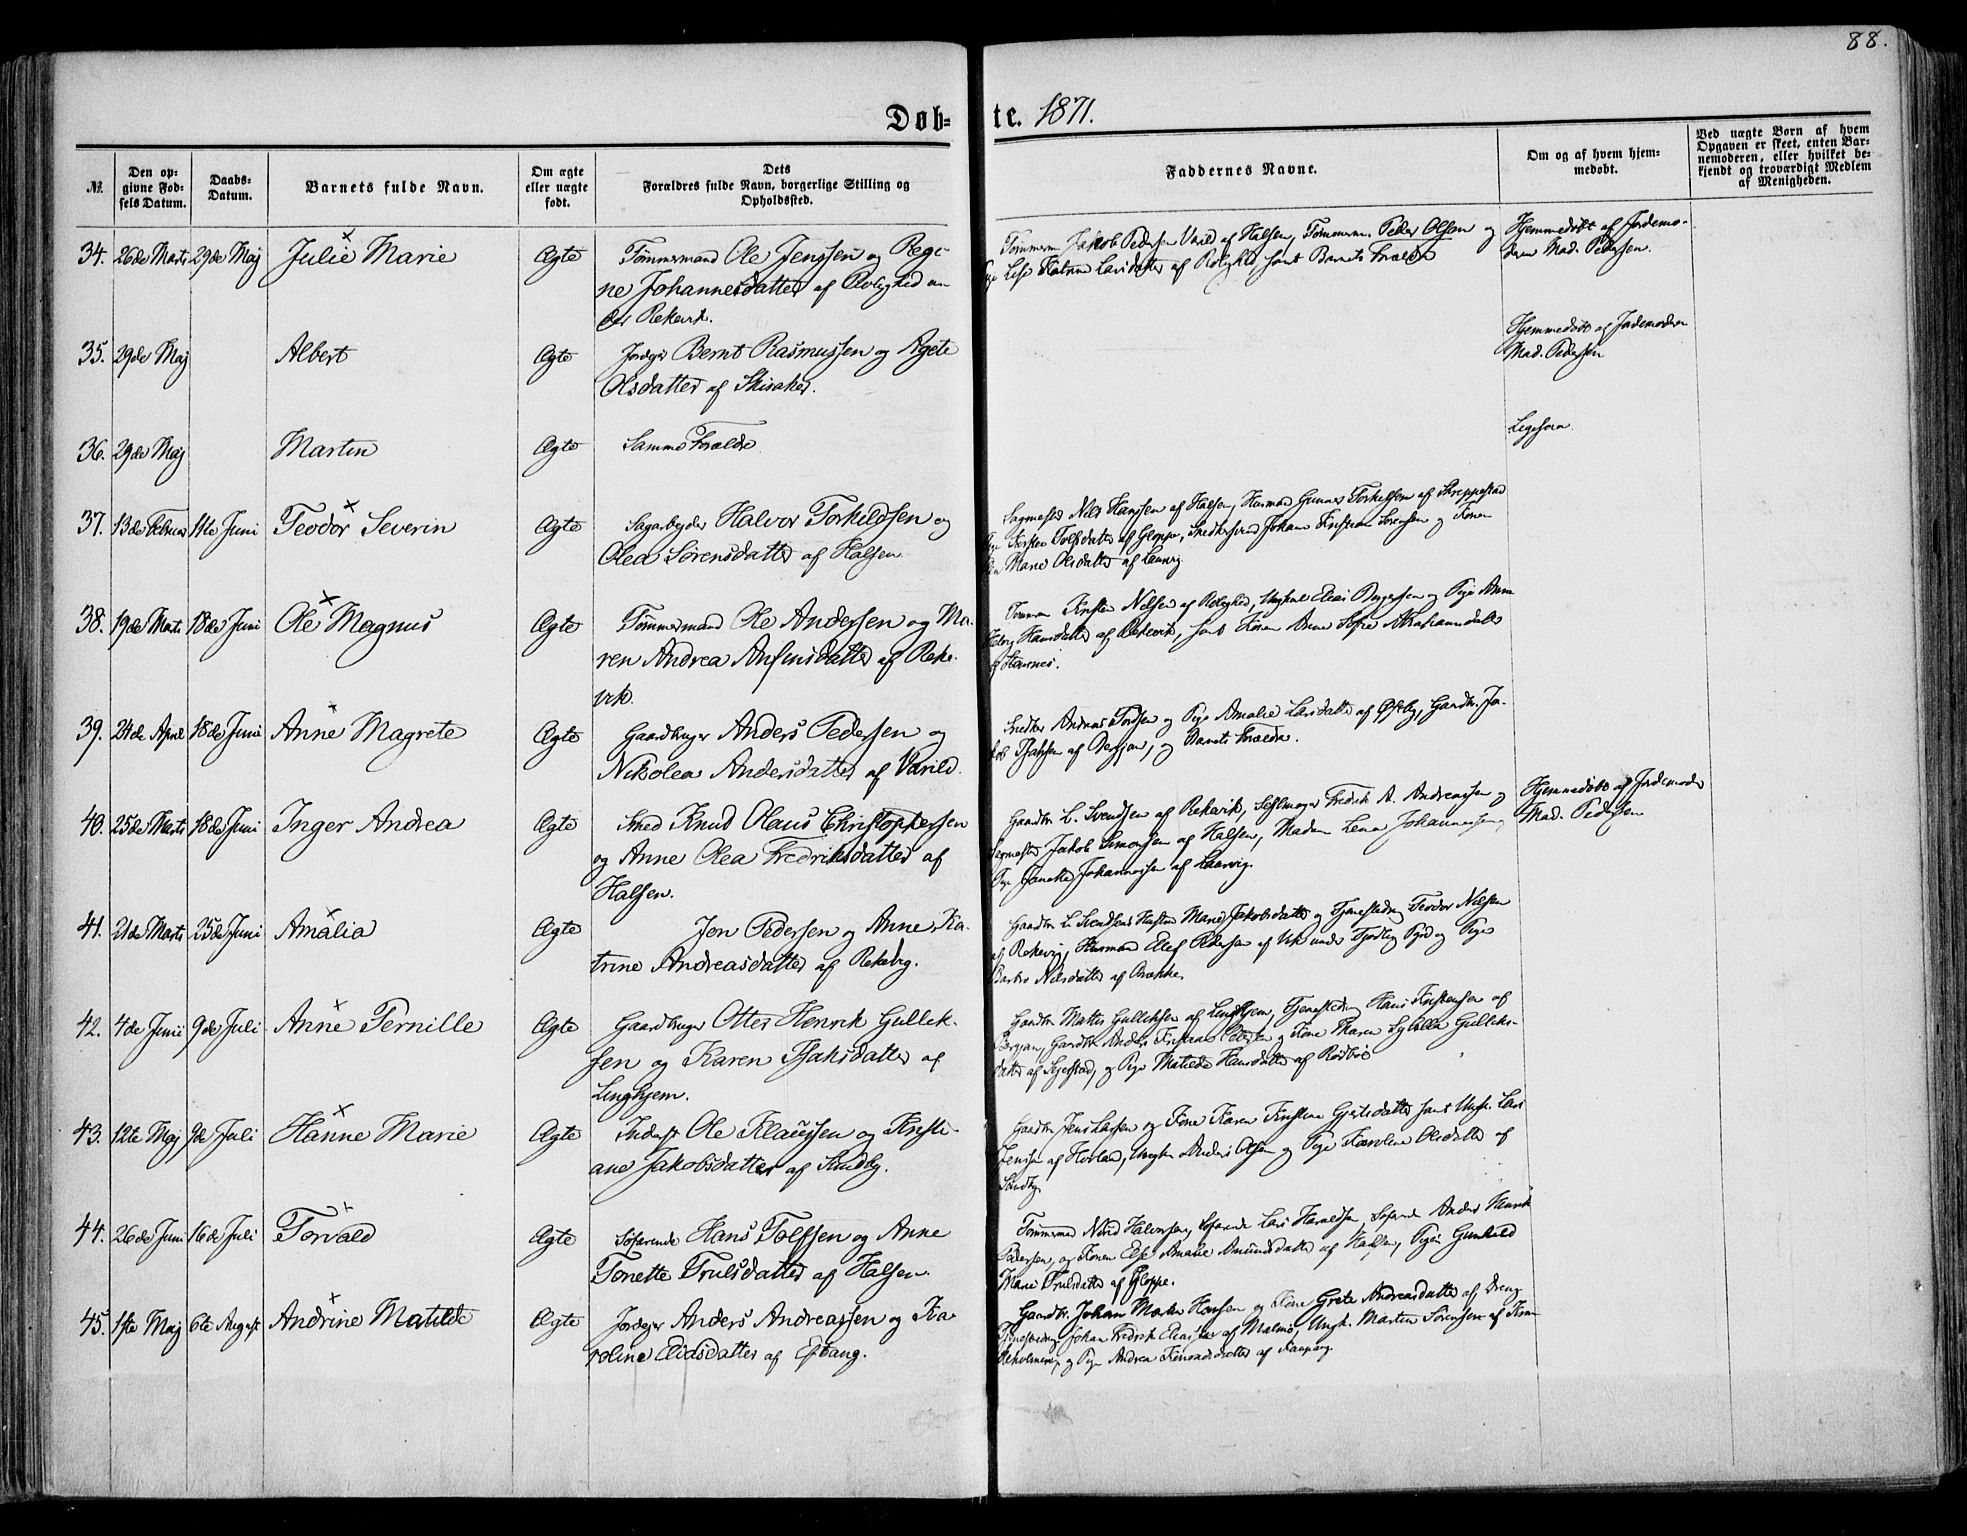 88.
Døb=
te. 1871.
№.
Den op-
givne Fød-
sels Datum.
Daabs-
Datum.
Barnets fulde Navn.
Om ægte
eller uægte
født.
Dets
Forældres fulde Navn, borgerlige Stilling og
Opholdssted.
Faddernes Navne.
Om og af hvem hjem-
medøbt.
Ved uægte Børn af hvem
Opgaven er skeet, enten Bar-
nemoderen, eller hvilket be-
kjendt og troværdigt Medlem
af Menigheden.
34. 26de Marts 29de Maj Julie Marie Ægte Tømmermand Ole Jenssen og Regi-
ne Johannesdatter af Rolighed un-
der Rekevik.
Tømmerm Jakob Pedersen Varild af Halsen, Tømmerm. Peder Olsen og
Pige Lise Katrine Larsdatter af Rolighed, samt Barnets Forældre
Hjemmedøbt af Jordemo-
deren Mad. Pedersen.
35. 29de Maj Albert Ægte Jordejer Bernt Rasmussen og Agete
Olsdatter af Skisaker.
Hjemmedøbt af Jordemoderen
Mad. Pedersen
36. 29de Maj Martin Ægte Samme Forældre
Ligesaa
37. 13de Februar 11te Juni Teodor Severin Ægte Sagarbejder Halvor Torkildsen og
Olea Sørensdatter af Halsen
Sagmester Nils Hanssen af Halsen, Husmand Gunnar Torkelssen af Skreppestad
Pige Kirsten Tolfsdatter af Gloppe, Snedkersvend Johan Kristian Sørensen og Konen
Marie Olsdatter af Laurvig
38. 19de Marts 18de Juni Ole Magnus Ægte Tømmermand Ole Andersen og Ma-
ren Andrea Anfinsdatter af Reke-
vik.
Tømmerm Kristen Nilsen af Rolighed, Ungkarl Elias Birgersen og Pige Anne
Hansdatter af Rekevik, samt Konen Anne Sofie Abrahamsdatter
af Stavnes.
39. 24de April 18de Juni Anne Magrete Ægte Gaardbruger Anders Pedersen og
Nikolea Andersdatter af Varild.
Snedker Andreas Tordsen og Pige Amalie Larsdatter af Østeby, Gaardbr. Ja-
kob Isaksen af Bergan, og Barnets Forældre.
40. 25de Marts 18de Juni Inger Andrea Ægte Smed Knud Olaus Christophersen
og Anne Olea Fredriksdatter af
Halsen.
Gaardbr L. Svendsen af Rekevik, Sejlmager Fredrik A. Andreassen og
Sagmester Jakob Simonsen af Halsen, Madam Lena Johannessen,
Pige Janette Johannessen af Laurvig.
Hjemmedøbt af Jordemoder
Mad. Pedersen
41. 21de Marts 25de Juni Amalia Ægte Jon Pedersen og Anne Ka-
trine Andreasdatter af Rekevig.
Gaardbr L. Svendsens Hustru Marie Jakobsdatter og Tjenestedreng Teodor Nilsen
af Rekevig, Husmand Elef Pedersen af Vik under Fjodlig og Pige
Barbro Nilsdatter af Brække.
42. 4de Juni 9de Juli Anne Pernille Ægte Gaardbruger Otter Henrik Gullik-
sen og Karen Isaksdatter af
Linghjem.
Gaardbr Mattis Gulliksen af Linghjem, Tjenestedreng Hans Kristensen af
Bergan, Gaardbr Anders Kristian Pedersen og Kone Maren Sybilla Gulliks-
datter af Sejerstad, og Pige Matilde Hansdatter af Rødbøl
43. 12te Maj 9de Juli Hanne Marie Ægte Inderst Ole Klaussen og Kristi-
ane Jakobsdatter af Sundby.
Gaardbr Jens Larsen og Kone Karen Kristine Gjertsdatter samt Ungk. Lars
Jensen af Hovland, Ungk Anders Olsen og Pige Karoline Olsdatter af
Sundby
44. 26de Juni 16de Juli Torvald Ægte Søfarende Hans Tolfsen og Anne
Tonette Trulsdatter af Halsen.
Tømmerm Nils Halvorsen, Søfarende Lars Haraldsen, Søfarende Anders Henrik
Pedersen, og Konen Else Amalie Amundsdatter af Halsen, Pige Gunhild
Marie Trulsdatter af Gloppe.
45. 1ste Maj 6te August Andrine Matilde Ægte Jordejer Anders Andreassen og Ka-
roline Elidsdatter af Østang.
Gaardbr. Johan Martin Hansen og Kone Grete Andreasdatter af Dreng
Tjenestedreng Johan Fredrik Eliassen af Malmø, Ungk. Martin Sørensen af Kran
Rekholmen, og Pige Andrea Simonsdatter af Kaupang.